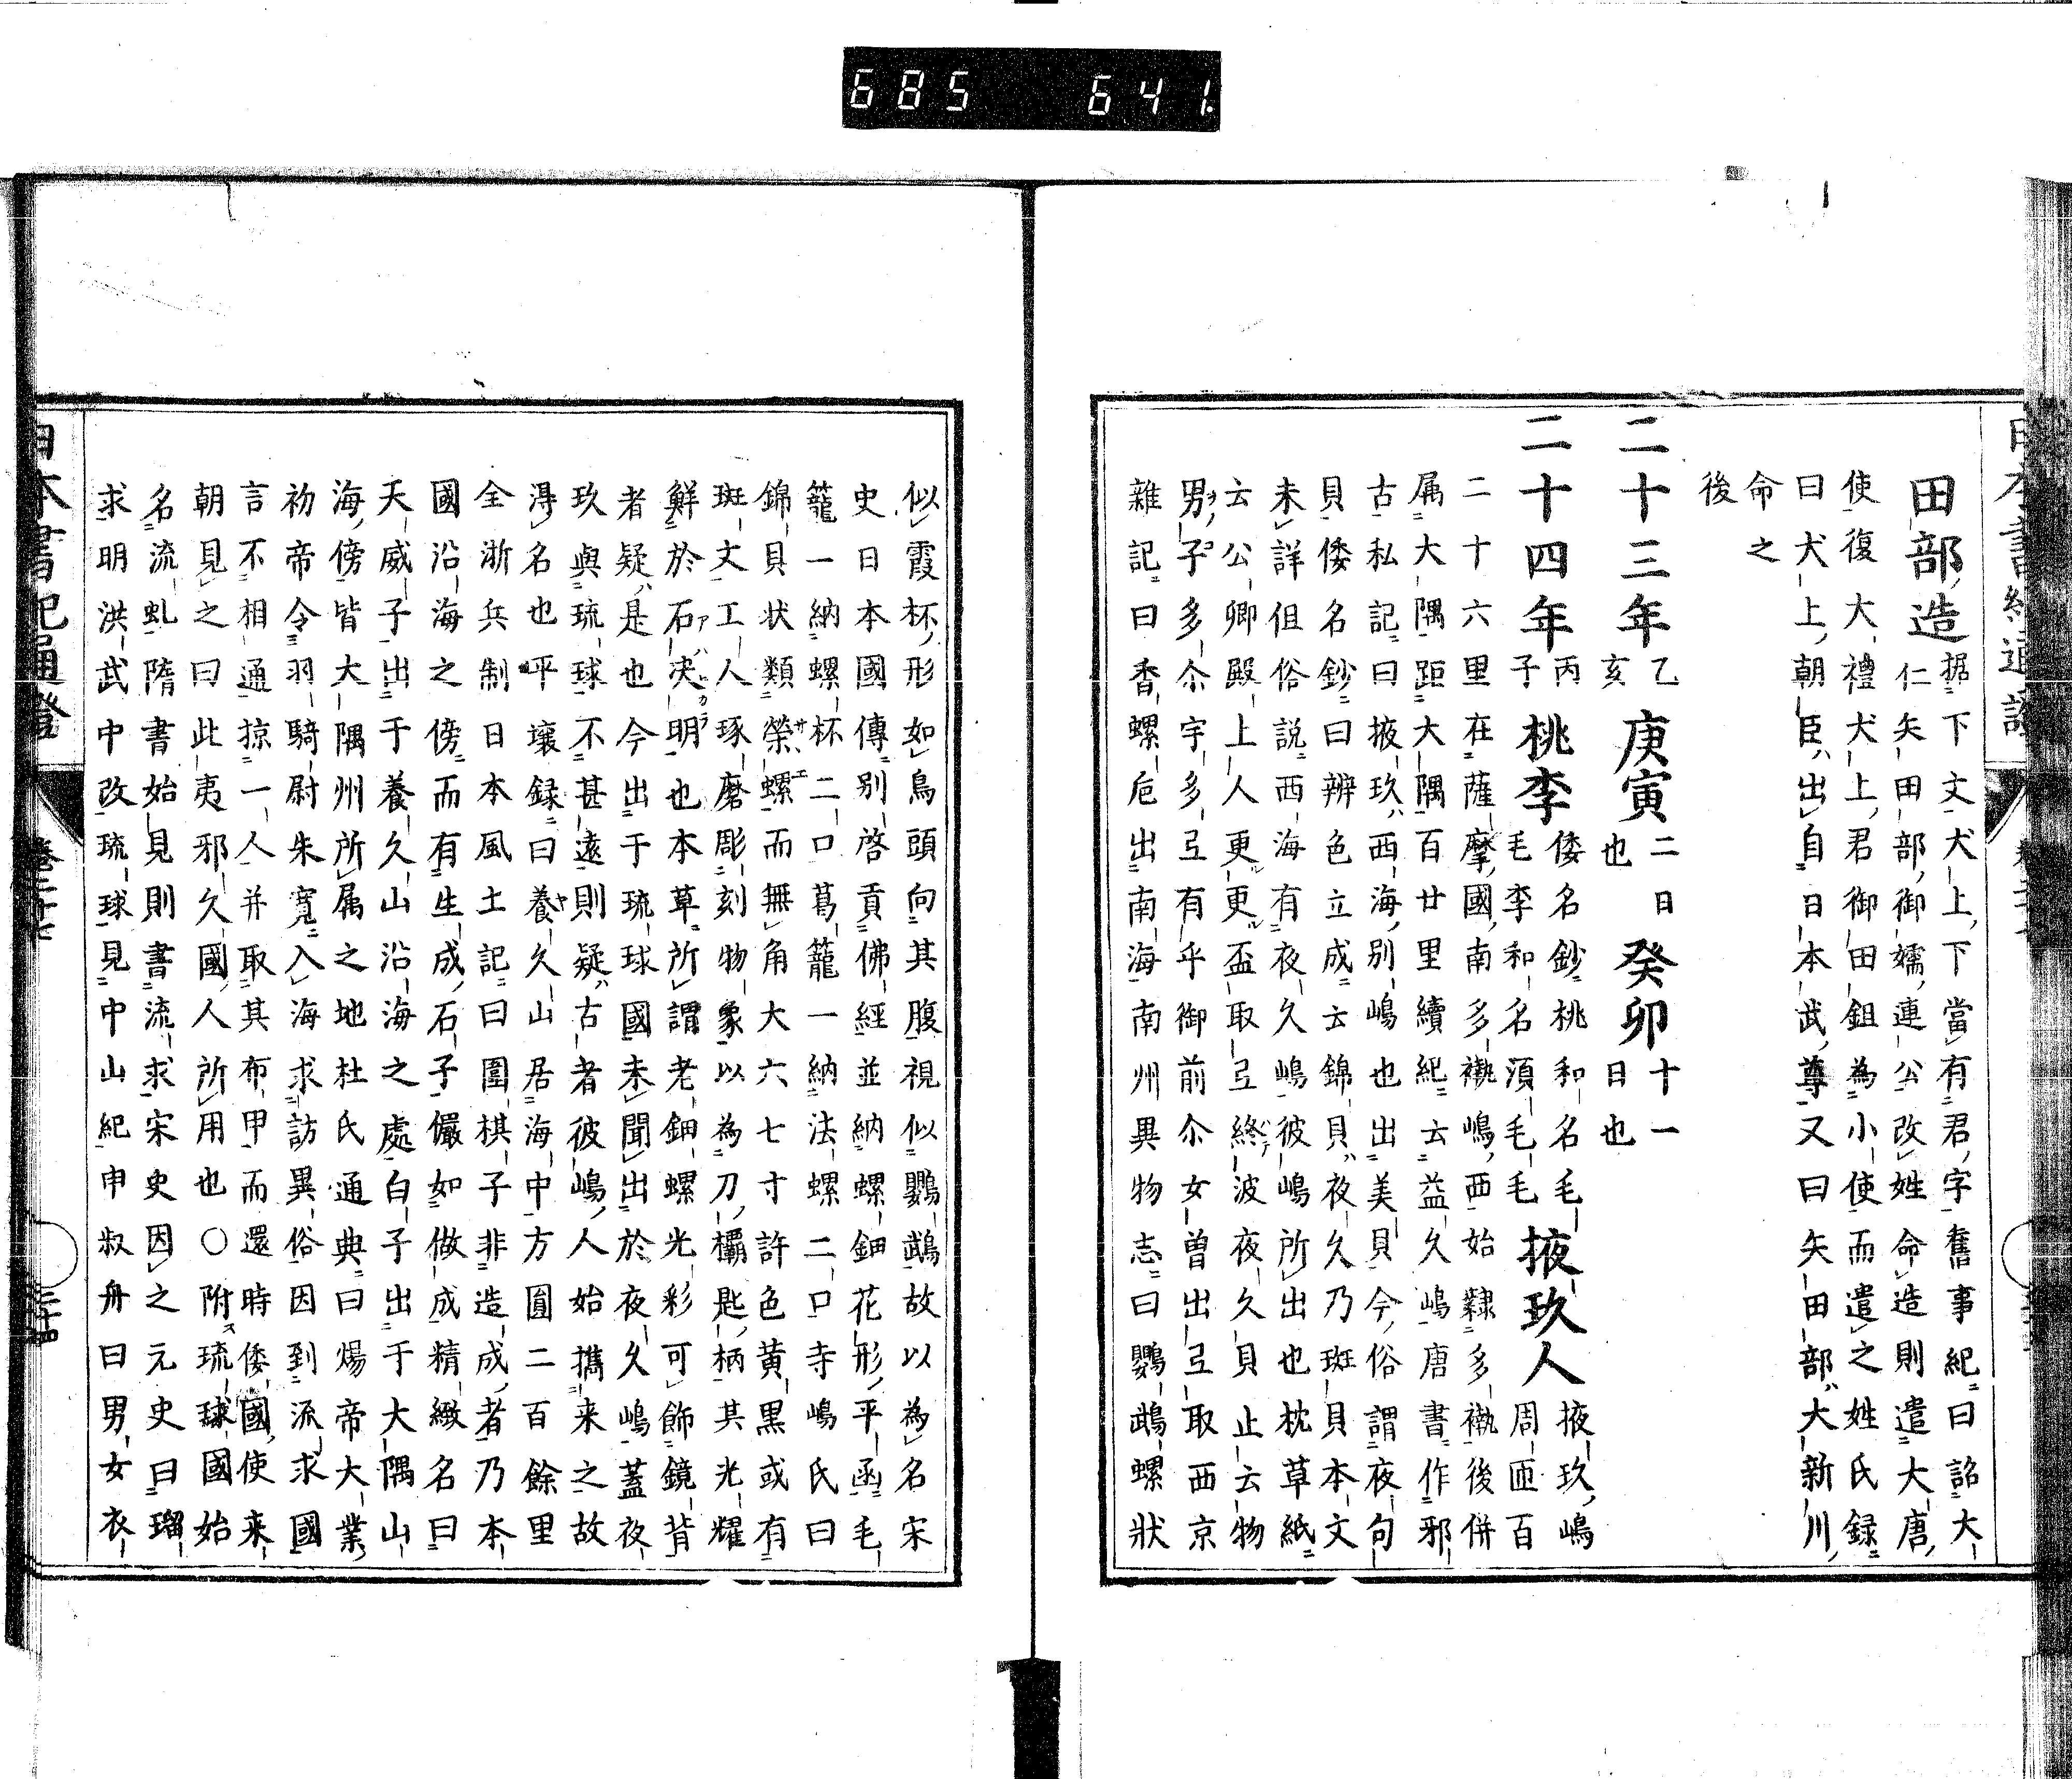 685 641
田部造 据下文犬上下當有君字舊事紀曰詔大
仁矢田部御嬬連公改姓命造則遣大唐
使復大禮犬上君御田鉏為小使而遣之姓氏録
曰犬上朝臣出自日本武尊又曰矢田部大新川
命之
後
二十三年 乙亥 庚寅 二日也 癸卯 十一日也
二十四年 丙子 桃李 倭名鈔桃和名毛毛李和名湏毛毛 掖玖人 掖玖嶋周匝百
二十六里在薩摩國南多褹嶋西始隷多褹後併
属大隅距大隅百廿里續紀云益久嶋唐書作邪
古私記曰掖玖西海別嶋也出美貝今俗謂夜句
貝倭名鈔曰辨色立成云錦貝夜久乃斑貝本文
未詳但俗説西海有夜久嶋彼嶋所出也枕草紙
云公卿殿上人更更盃取弖終波夜久貝止云物
男子多尒宇多弖有乎御前尒女曽出弖取西京
雜記曰香螺巵出南海南州異物志曰鸚鵡螺狀
似霞杯形如鳥頭向其腹視似鸚鵡故以為名宋
史日本國傳別啓貢佛經並納螺鈿花形平函毛
籠一納螺杯二口葛籠一納法螺二口寺嶋氏曰
錦貝状類榮螺而無角大六七寸許色黄黒或有
斑文工人琢磨彫刻物象以為刀欛匙柄其光耀
鮮於石决明也本草所謂老鈿螺光彩可飾鏡背
者疑是也今出于琉球國未聞出於夜久嶋蓋夜
玖與琉球不甚遠則疑古者彼嶋人始擕来之故
淂名也平壤録曰養久山居海中方圓二百餘里
全浙兵制日本風土記曰圍棋子非造成者乃本
國沿海之傍而有生成石子儼如做成精緻名曰
天威子出于養久山沿海之處白子出于大隅山
海傍皆大隅州所属之地杜氏通典曰煬帝大業
初帝令羽騎尉朱寛入海求訪異俗因到流求國
言不相通掠一人并取其布甲而還時倭國使来
朝見之曰此夷邪久國人所用也○附琉球國始
名流虬隋書始見則書流求宋史因之元史曰瑠
求明洪武中改琉球見中山紀申叔舟曰男女衣
日本書紀通證
卷二十七
三十四